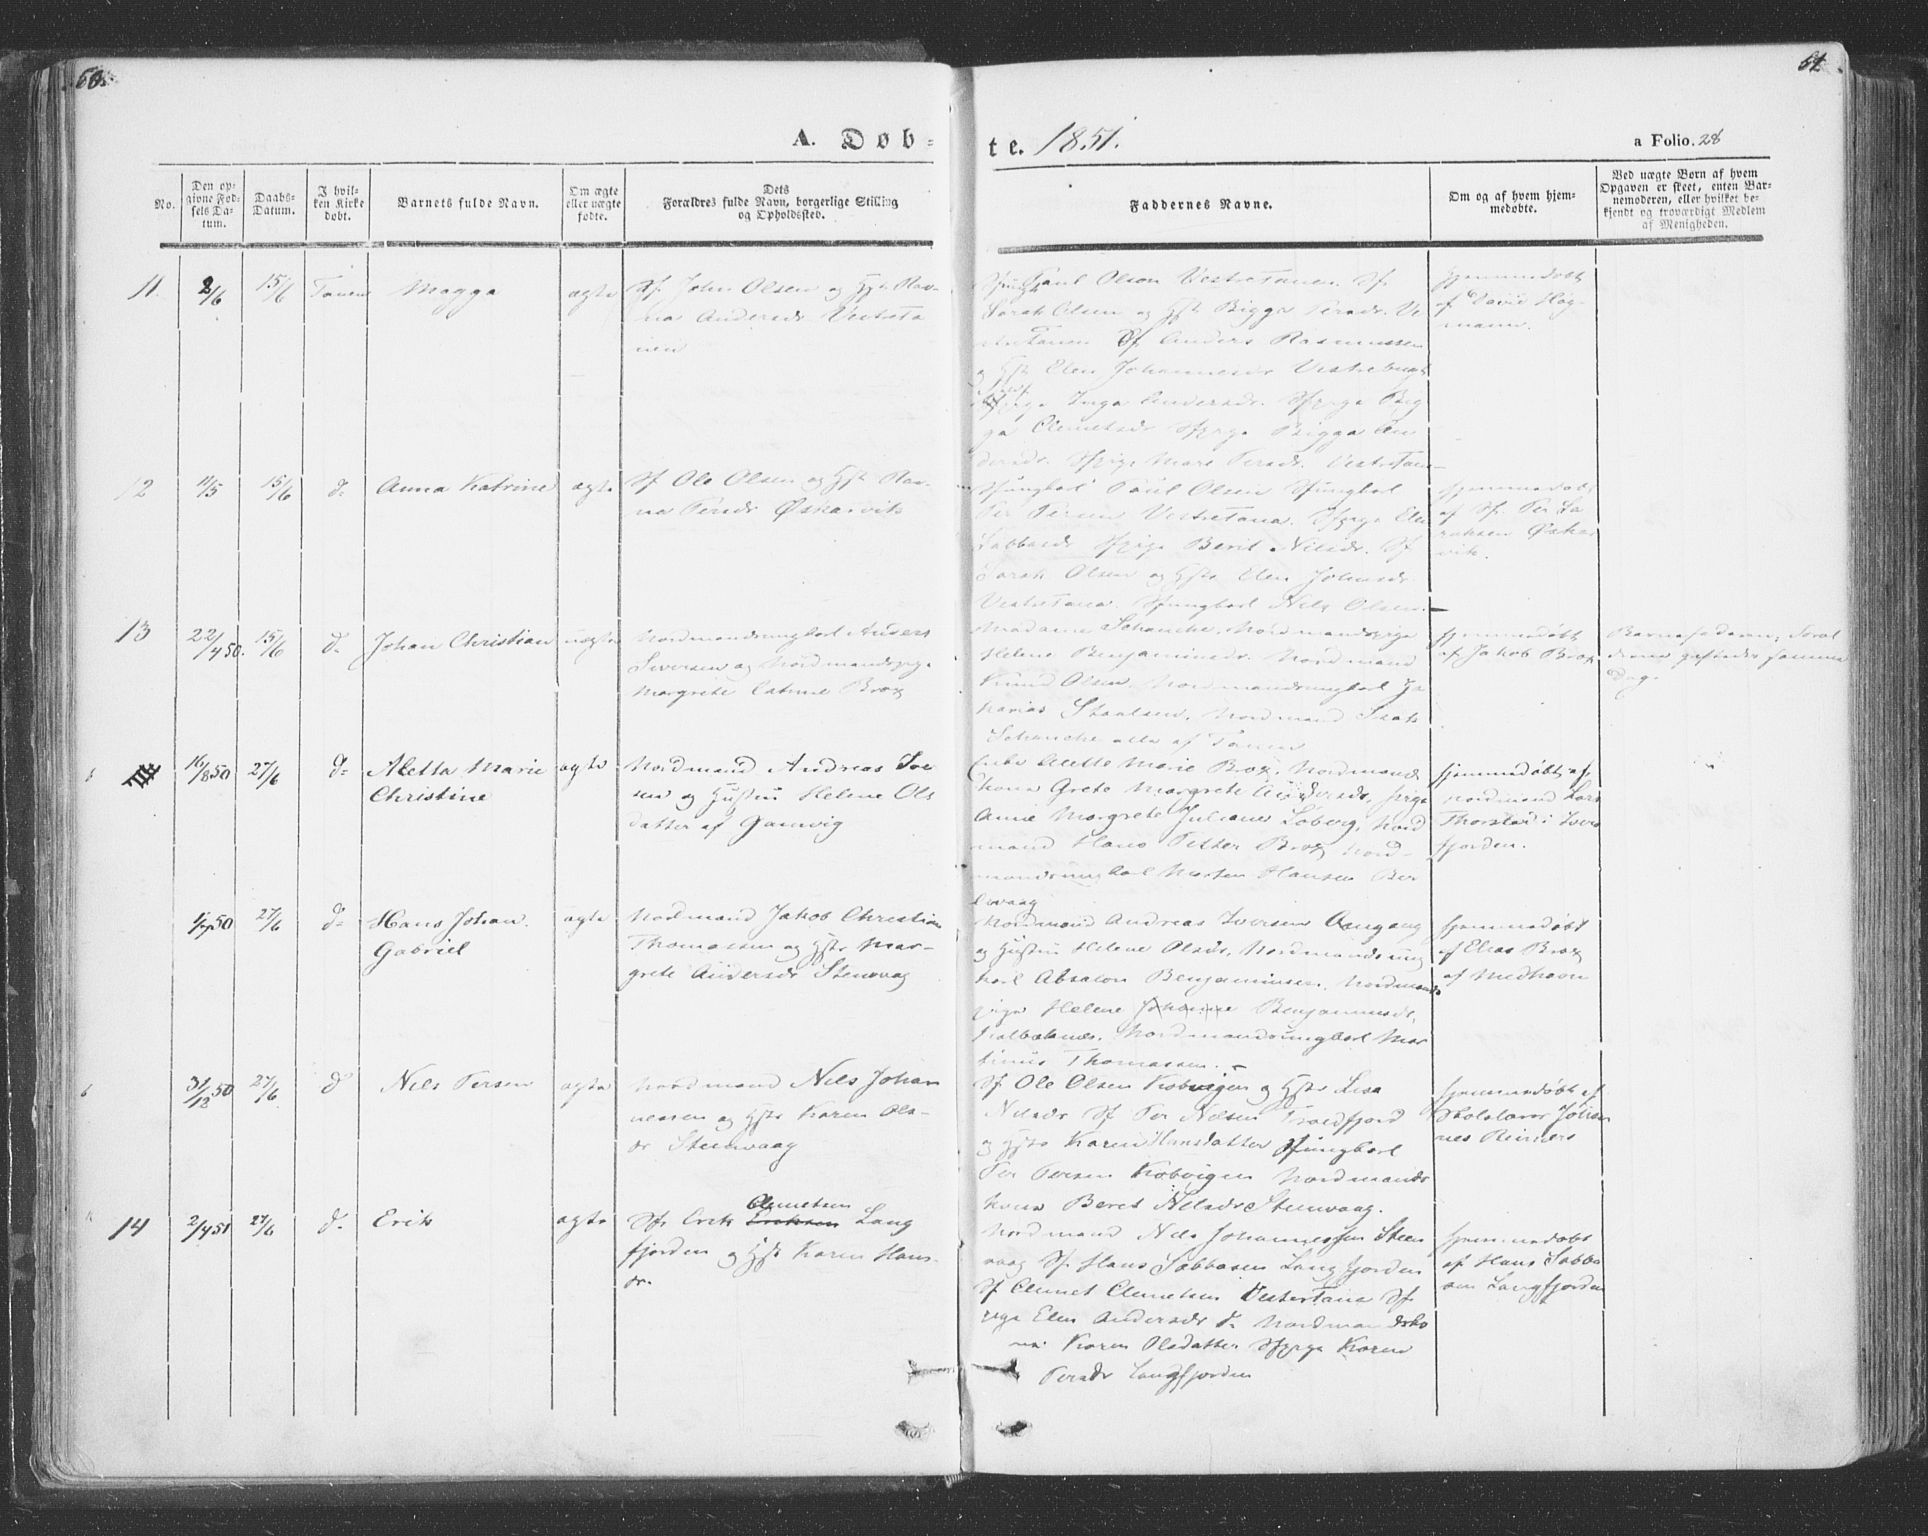 60.
61
A. Døb-
te. 1851.
a Folio. 28
No.
Den op-
givne Fød-
sels Da-
tum.
Daabs-
Datum.
I hvil-
ken Kirke
døbt.
Barnets fulde Navn.
Om ægte
eller uægte
fødte.
Dets
Forældres fulde Navn, borgerlige Stilling
og Opholdssted.
Faddernes Navne.
Om og af hvem hjem-
medøbte.
Ved uægte Børn af hvem
Opgaven er skeet, enten Bar-
nemoderen, eller hvilket be-
kjendt og troværdigt Medlem
af Menigheden.
11. 2/6 15/6 Tanen Magga ægte Sf. John Olsen og Hstr Rav-
na Andersdr Vestreta
nen
Paul Olsen Vestretanen. Sf.
Sarak Olsen og Hstr Bigga Persdr. Ve
streTanen Sf Anders Rasmussen
og Hstr Elen Johannesdr
Inga Andersdr. Sfpige Big
ga Clemetsdr Sfpige Bigga An
dersdr. Sfpige Mare Persdr. VestreTan
hjemmedøbt
af David Hög-
mann.
12 11/5 15/6 d= Anna Katrine ægte Sf Ole Olsen og Hstr Rav-
na Persdr Øskarvik
Sfungkarl Paul Olsen Sfungkarl
Per Persen VestreTana. Sfpige Elen
Sabbasdr Sfpige Berit Nilsdr. Sf
Sarak Olsen og Hstr Elen Johnsdr
VestreTana. Sfungkarl Nils Olsen.
hjemmedøbt
af Sf. Per La
Øskar
vik.
13 22/4 50. 15/6 d= Johan Christian uægte Nordmandsungkarl Anders
Iversen og Nordmandspige
Margrete Catrine Brox
Madame Schanche, Nordmandspige
Helene Benjaminsdr. Nordmand
Knud Olsen. Nordmandsungkarl Za
karias Staalsen, Nordmand Isak
Schanche alle af Tanen
hjemmedøbt
af Jakob Brox
Barnefaderen; Foræl
drene giftedes samme
Dag.
16/8 50 27/6 d= Aletta Marie
Christine
ægte Nordmand Andreas Iver
sen og Hustru Helene Ols
datter af Gamvig
Enke Alette Marie Brox, Nordmands
kona Grete Margrete Andersdr, pige
Anne Margrete Juliane Loberg, Nord
mand Hans Petter Brox Nord-
mandsungkarl Morten Hansen Ber
levaag
hjemmedøbt af
Nordmand Lars
Thorstad i Iver
fjorden.
1/7 50 27/6 d= Hans Johan
Gabriel
ægte Nordmand Jakob Christian
Thomassen og Hstr Mar-
grete Andersdr Stenvaag
Nordmand Andreas Iversen Omgang
og Hustru Helene Olsdr, Nordmandsung
karl Absalon Benjaminsen, Nordmands
pige Helene Johanne Benjaminsdr,
Kalbaknes. Nordmandsungkarl Mar
tinus Thomassen.
hjemmedøbt
af Elias Brox
af Medhavn
31/12 50 27/6 d Nils Persen ægte Nordmand Nils Johan
nessen og Hstr Karen Ols-
dr Steenvaag
Sf Ole Olsen Kobvigen og Hstr Lisa
Nilsdr Sf Per Nilsen Troldfjord
og Hstr Karen Hansdatter Sfungkarl
Per Persen Kobvigen Nordmands
kona Beret Nilsdr Steenvaag.
hjemmedøbt af
Skolelærer Johan
nes Reiners
14 2/4 51 27/6 d= Erik ægte Sf. Erik Eriksen Clemetsen Lang
fjorden og Hstr Karen Hans-
dr.
Nordmand Nils Johannessen Steen
vaag Sf. Hans Sabbasen Langfjorden
Sf Clemet Clemetsen VesterTana Sf
pige Elen Andersdr d= Nordmandsko
na Karen Olsdatter Sfpige Karen
Persdr Langfjorden
hjemmedøbt
af Hans Sabba
sen Langfjorden